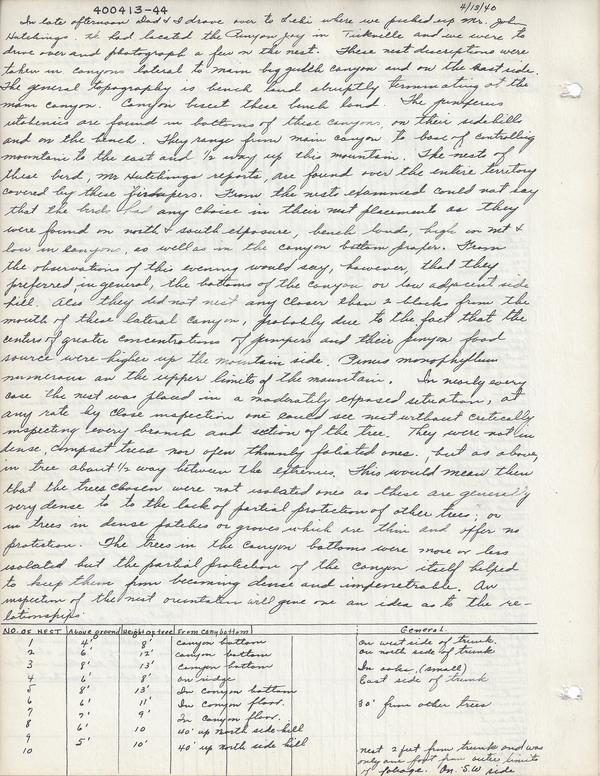 400413-44
4/13/40
In late afternoon Dad & I drove over to Lehi where we picked up Mr. John
Hutchings. He had located the Pinyon jay in Tickville and we were to
drive over and photograph a few on the nest. These nest descriptions were
taken in canyons lateral to main big gulch canyon and on the east side.
The general topography is bench land abruptly terminating at the
main canyon. Canyon bisect these bench land. The juniperus
utahensis are found in bottoms of these canyons, on their sidehills
and on the bench. They range from main canyon to base of controlling
mountain to the east and 1/2 way up this mountain. The nests of
these bird, Mr Hutchings reports, are found over the entire territory
covered by these junipers. From the nests examined could not say
that the birds had any choice in their nest placements as they
were found on north & south exposure, bench lands, high on mt &
low in canyons, as well as in the canyon bottom proper. From
the observations of this evening would say, however, that they
preferred in general, the bottoms of the canyon or low adjacent side
hill. Also they did not nest any closer than 2 blocks from the
mouth of these lateral canyon, probably due to the fact that the
centers of greater concentrations of junipers and their pinyon food
source were higher up the mountain side. Pinus monophyllum
numerous on the upper limits of the mountain. In nearly every
case the nest was placed in a moderately exposed situation, at
any rate by close inspection one could see nest without critically
inspecting every branch and section of the tree. They were not in
dense, compact trees nor open thinnly foliated ones. but as above,
in tree about 1/2 way between the extremes. This would mean then
that the trees chosen were not isolated ones as these are generally
very dense to to the lack of partial protection of other trees; or
in trees in dense patches or groves which are thin and offer no
protection. The trees in the canyon bottoms were more or less
isolated but the partial protection of the canyon itself helped
to keep them from becoming dense and impenetrable. An
inspection of the nest orientation will give one an idea as to the re-
lationships
NO. OF NEST Above ground Height of tree From canyon bottom General
1 4' 8' canyon bottom On west side of trunk.
2 6' 12' canyon bottom on north side of trunk
3 8' 13' canyon bottom In oaks, (small)
4 6' 8' on ridge East side of trunk
5 8' 13' In canyon bottom
6 6' 11' In canyon floor. 30' from other trees
7 7' 9' In canyon floor.
8 6' 10 40' up north side hill
9 5' 10' 40' up north side hill
10 nest 2 feet from trunk and was
only one foot from outer limits
of foliage. On S.W side